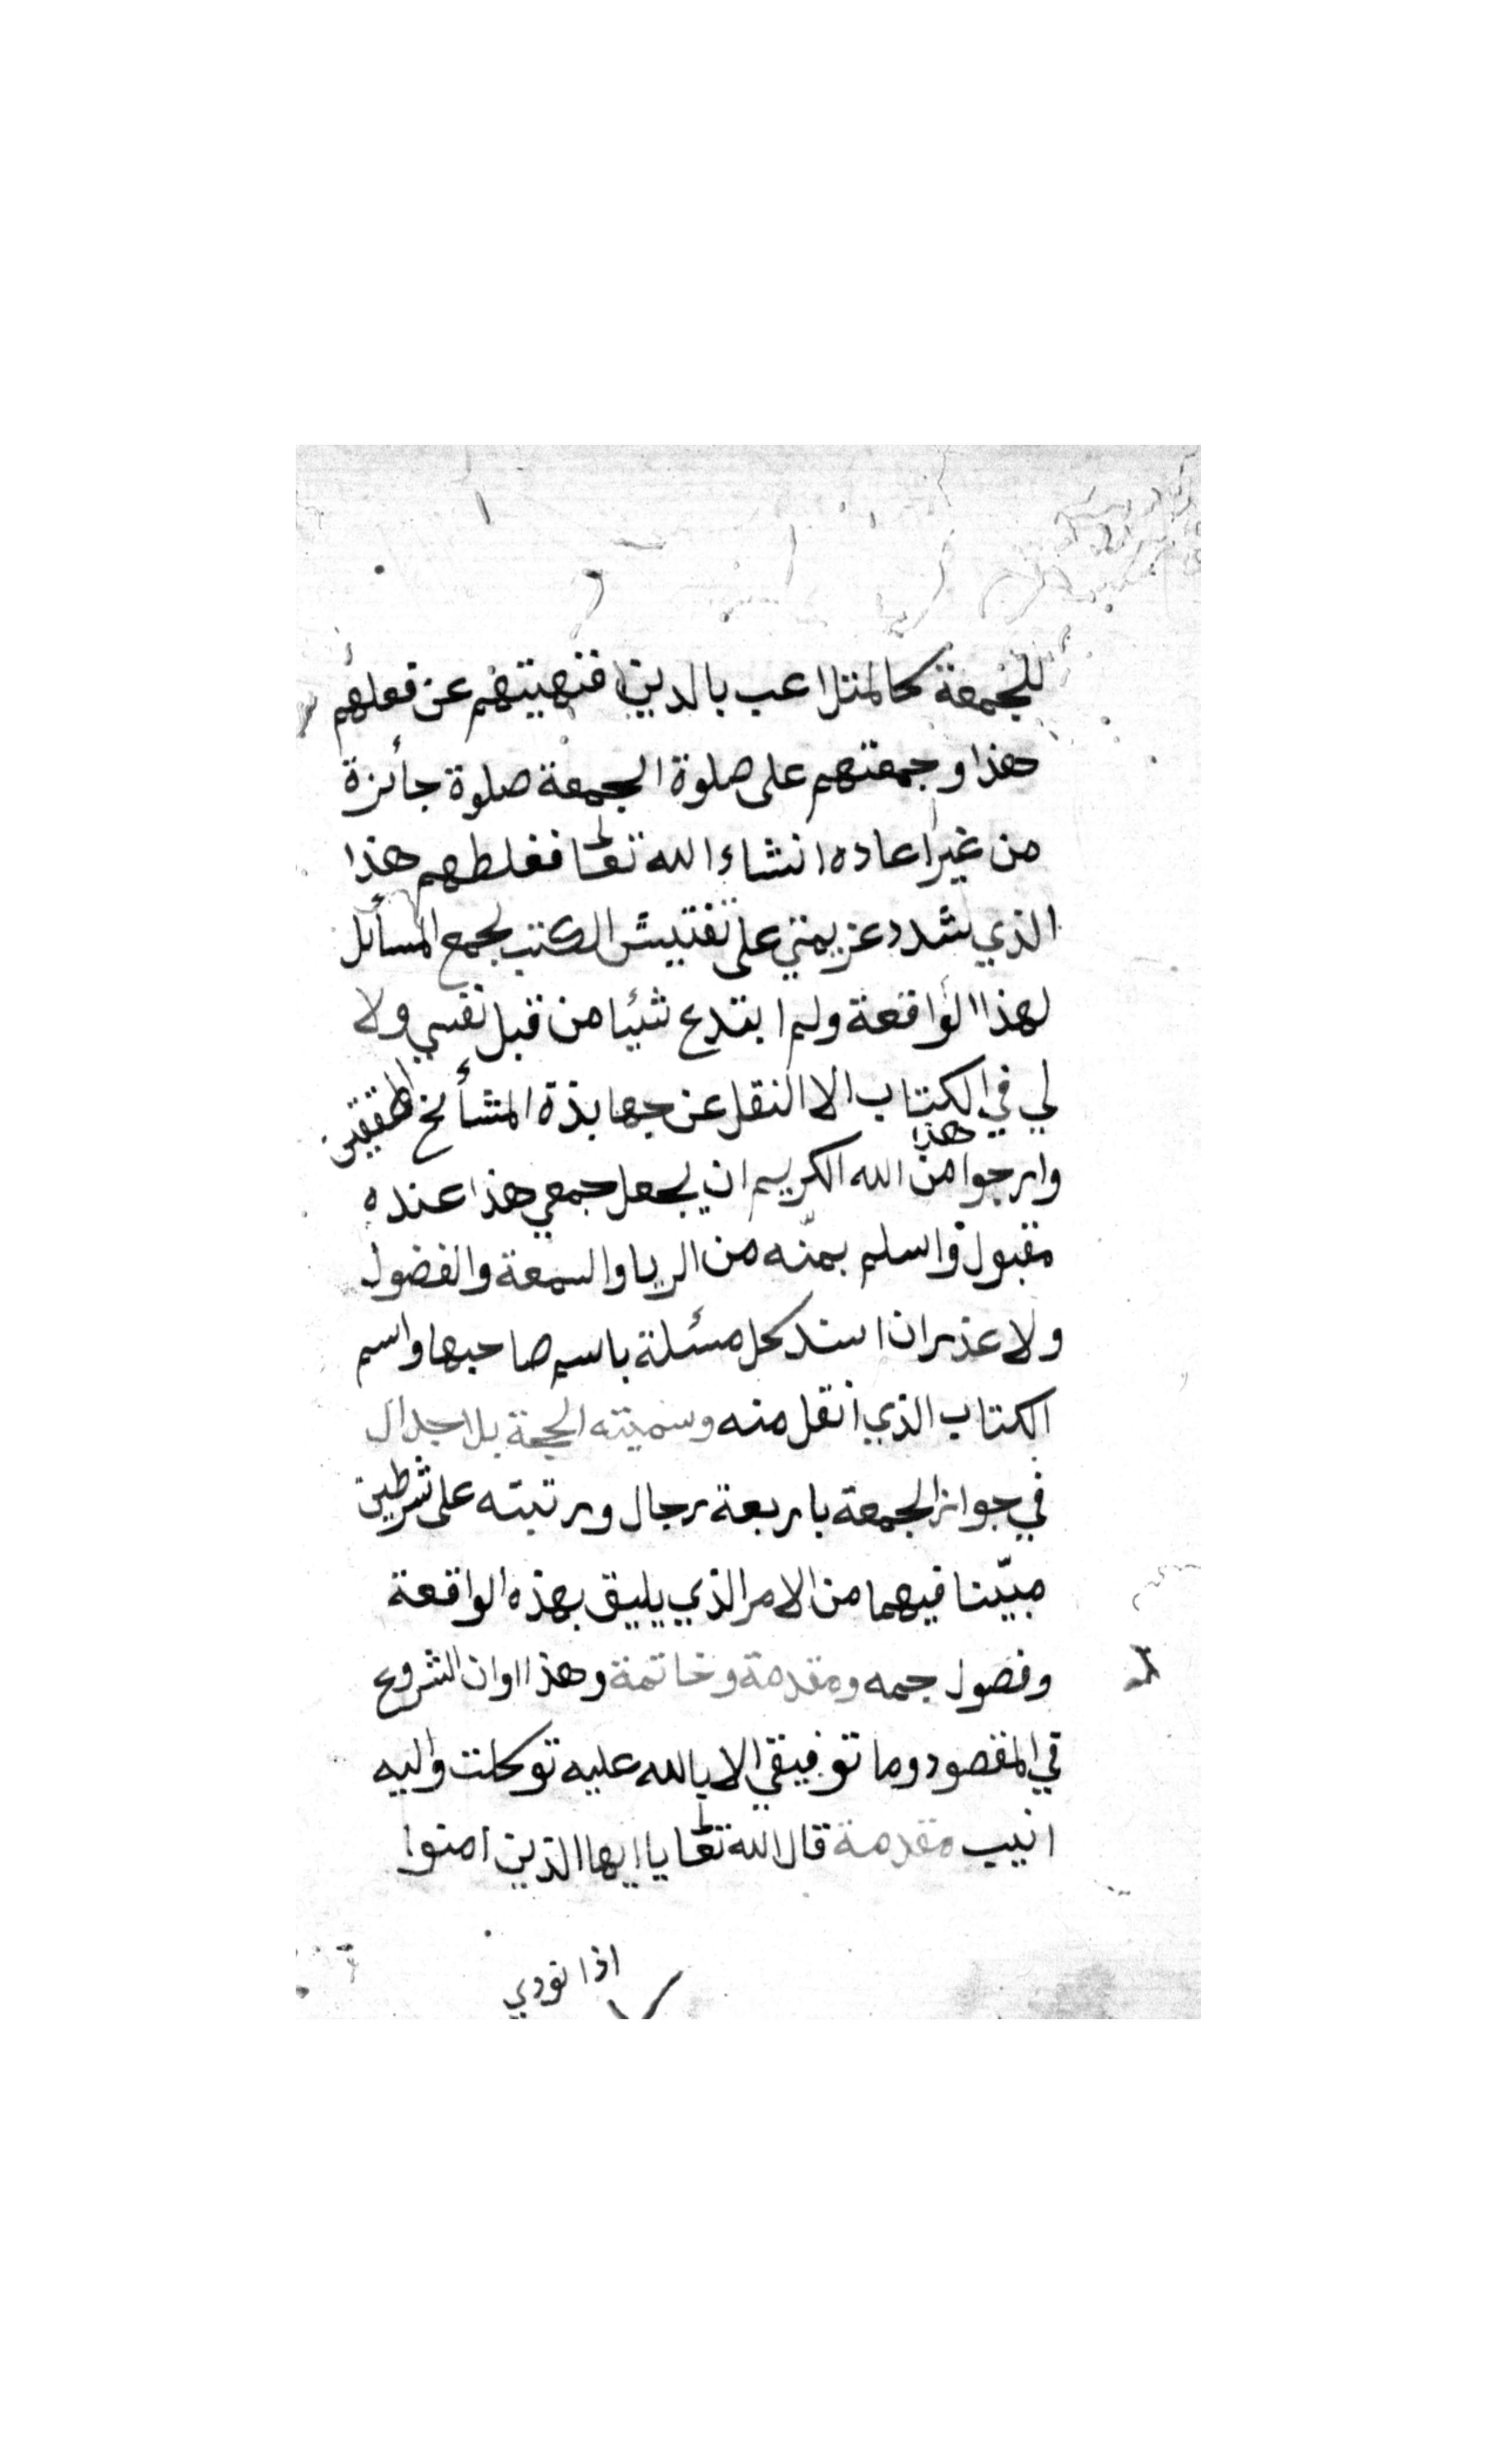 للجمعة كالمتلاعب بالدين فنهيتهم عن فعلهم
هذا وجمعتهم على صلوة الجمعة صلوة جائزة
من غير اعاده انشاء الله تعالى فغلطهم هذا
الذي شدد عزيمتي على تفتيش الكتب لجمع المسائل
لهذا الواقعة ولم ابتدع شيئا من قبل نفسي ولا
لي في الكتاب الا النقل عن جهابذة المشائخ المحققين
هذا
وارجوا من الله الكريم ان يجعل جمعي هذا عنده
مقبول واسلم بمنّه من الريا والسمعة والفضول
ولا عذر ان اسند كل مسئلة باسم صاحبها واسم
الكتاب الذي انقل منه وسميته الحجة بلا جدال
في جواز الجمعة باربعة رجال ورتبته على شرطين
مبيّنا فيهما من الامر الذي يليق بهذه الواقعة
وفصول جمه ومقدمة وخاتمة وهذا اوان الشروع
في المقصود وما توفيقي الا بالله عليه توكلت واليه
انيب مقدمة قال الله تعالى يا ايها الذين امنوا
اذا نودي